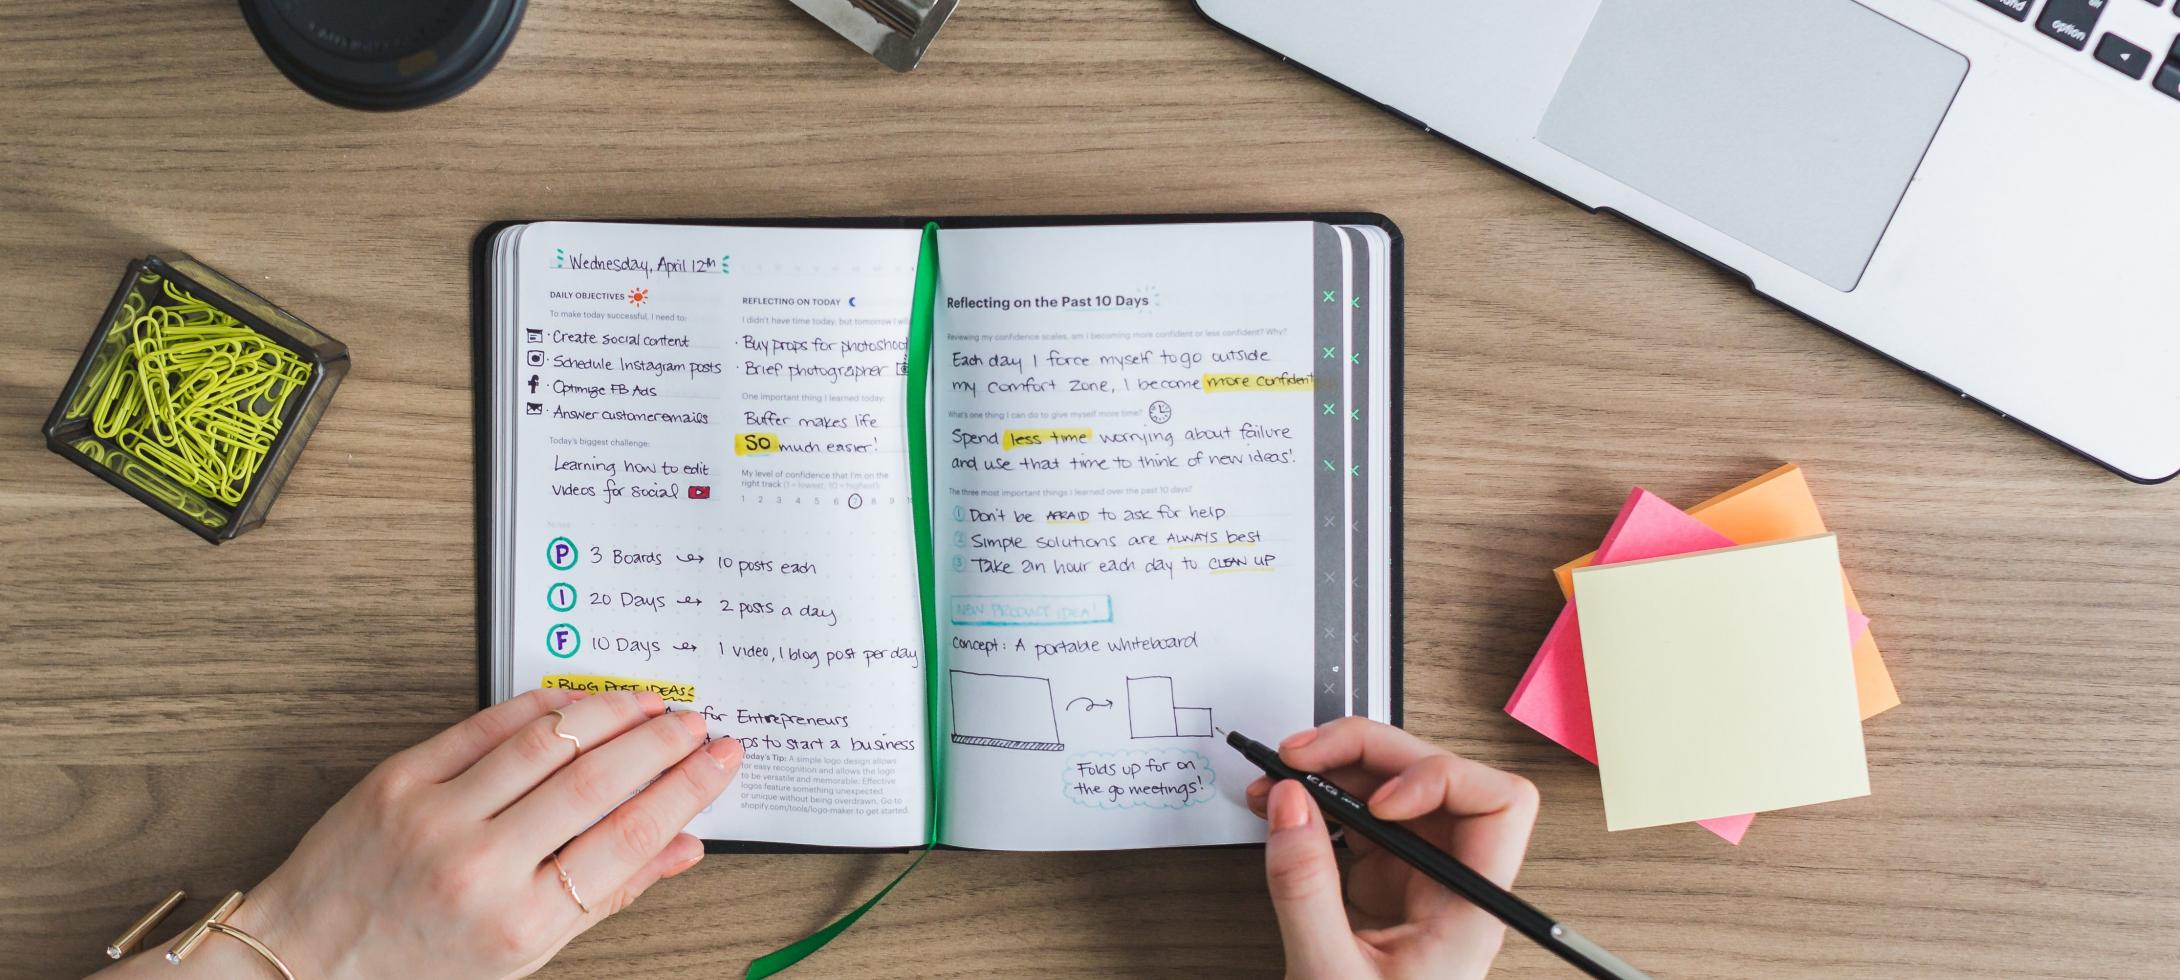 Wednesday, April 12th
DAILY OBJECTIVES
To make today successful, I need to:
· Create social content
· Schedule Instagram posts
· Optimize FB Ads
· Answer customer emails
Today's biggest challenge:
Learning how to edit
videos for social
Notes
P 3 Boards → 10 posts each
I 20 Days → 2 posts a day
F 10 Days → 1 video, 1 blog post per day
BLOG POST IDEAS
for Entrepreneurs
to start a business
REFLECTING ON TODAY
I didn't have time today, but tomorrow I will
· Buy props for photoshoot
· Brief photographer
One important thing I learned today:
Buffer makes life
SO much easier!
My level of confidence that I'm on the
right track (1 = lowest, 10 = highest):
1 2 3 4 5 6 7 8 9
Today's Tip: A simple logo design allows
for easy recognition and allows the logo
to be versatile and memorable. Effective
logos feature something unexpected
or unique without being overdrawn. Go to
shopify.com/tools/logo-maker to get started.
Reflecting on the Past 10 Days
Reviewing my confidence scales, am I becoming more confident or less confident? Why?
Each day I force myself to go outside
my comfort zone, I become more confident
What's one thing I can do to give myself more time?
Spend less time worrying about failure
and use that time to think of new ideas!
The three most important things I learned over the past 10 days?
1 Don't be AFRAID to ask for help
2 Simple solutions are ALWAYS best
3 Take an hour each day to CLEAN UP
NEW PRODUCT IDEA!
Concept: A portable whiteboard
Folds up for on
the go meetings!
option